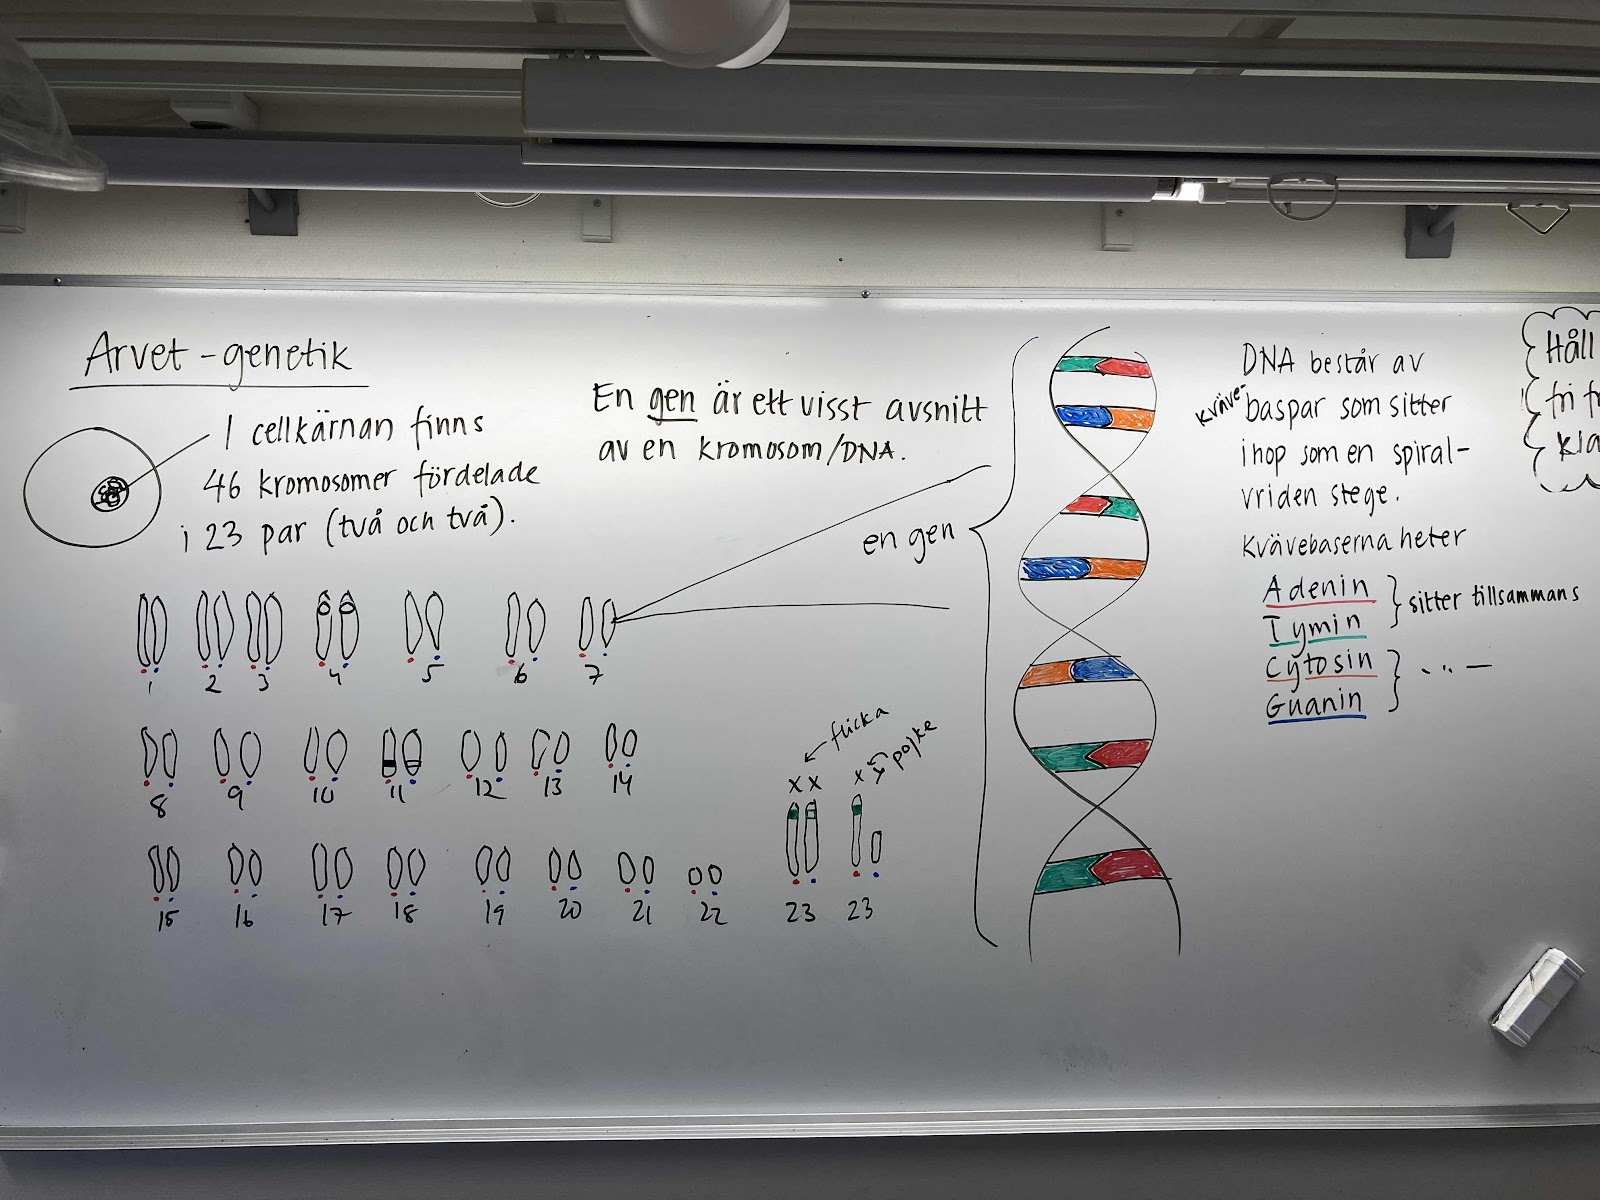 Arvet - genetik
I cellkärnan finns
46 kromosomer fördelade
i 23 par (två och två).
En gen är ett visst avsnitt
av en kromosom/DNA.
en gen
1 2 3 4 5 6 7
8 9 10 11 12 13 14
15 16 17 18 19 20 21 22 23 23
x x ← flicka
x y ← pojke
DNA består av
kväve-
baspar som sitter
ihop som en spiral-
vriden stege.
Kvävebaserna heter
Adenin
Tymin
sitter tillsammans
Cytosin
Guanin
Håll